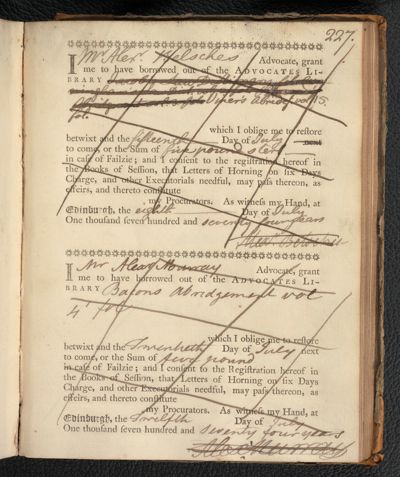 227.
I Mr Alex. Belsches Advocate, grant
me to have borrowed out of the ADVOCATES LI-
BRARY
Viner's abridgt vol 15.
fol.
which I oblige me to restore
betwixt and the fifteenth Day of July next
to come, or the Sum of five pound
in case of Failzie; and I consent to the registration hereof in
the Books of Session, that Letters of Horning on six Days
Charge, and other Executorials needful, may pass thereon, as
effeirs, and thereto constitute
my Procurators. As witness my Hand, at
Edinburgh, the eighth Day of July
One thousand seven hundred and seventy four years
Alex. Belsches
I Mr Alexr Murray Advocate, grant
me to have borrowed out of the ADVOCATES LI-
BRARY Bacons Abridgement vol
4th fol
which I oblige me to restore
betwixt and the Twentieth Day of July next
to come, or the Sum of five pound
in case of Failzie; and I consent to the Registration hereof in
the Books of Session, that Letters of Horning on six Days
Charge, and other Executorials needful, may pass thereon, as
effeirs, and thereto constitute
my Procurators. As witness my Hand, at
Edinburgh, the twelfth Day of July
One thousand seven hundred and seventy four years
Alex Murray